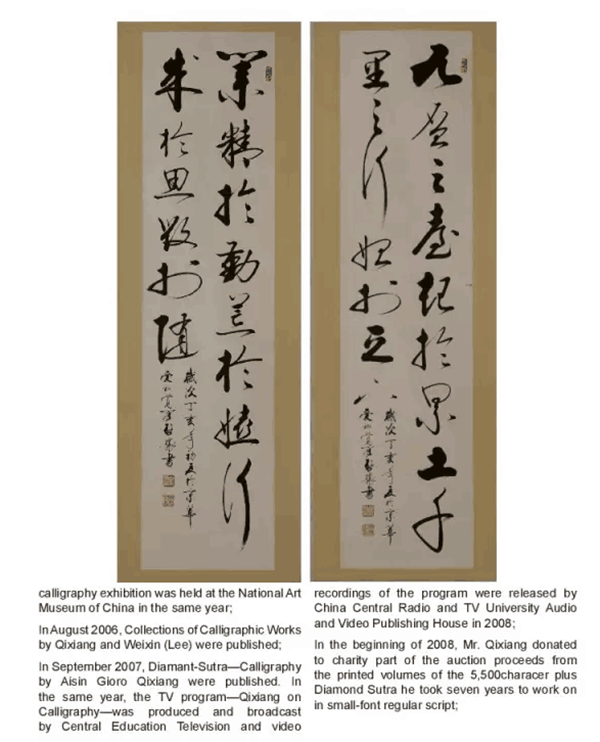 業精於勤荒於嬉行
成於思毀於隨
歲次丁亥年初夏於京華
愛新覺羅啟驤書
九層之臺起於累土千
里之行始於足下
歲次丁亥年夏於京華
愛新覺羅啟驤書
calligraphy exhibition was held at the National Art
Museum of China in the same year;
In August 2006, Collections of Calligraphic Works
by Qixiang and Weixin (Lee) were published;
In September 2007, Diamant-Sutra—Calligraphy
by Aisin Gioro Qixiang were published. In
the same year, the TV program—Qixiang on
Calligraphy—was produced and broadcast
by Central Education Television and video
recordings of the program were released by
China Central Radio and TV University Audio
and Video Publishing House in 2008;
In the beginning of 2008, Mr. Qixiang donated
to charity part of the auction proceeds from
the printed volumes of the 5,500characer plus
Diamond Sutra he took seven years to work on
in small-font regular script;